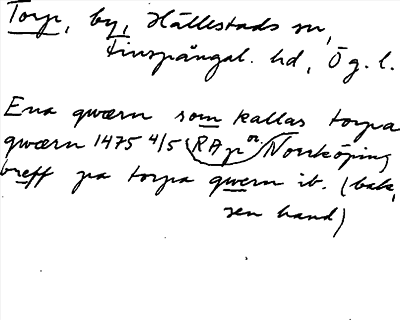 Torp, by, Hällestads sn,
Finspångal. hd, Ög. l.
Ena qwærn som kallas torpa
qwærn 1475 4/5 RAp or. Norrköping
breff pa torpa qwern ib. (baks,
sen hand)